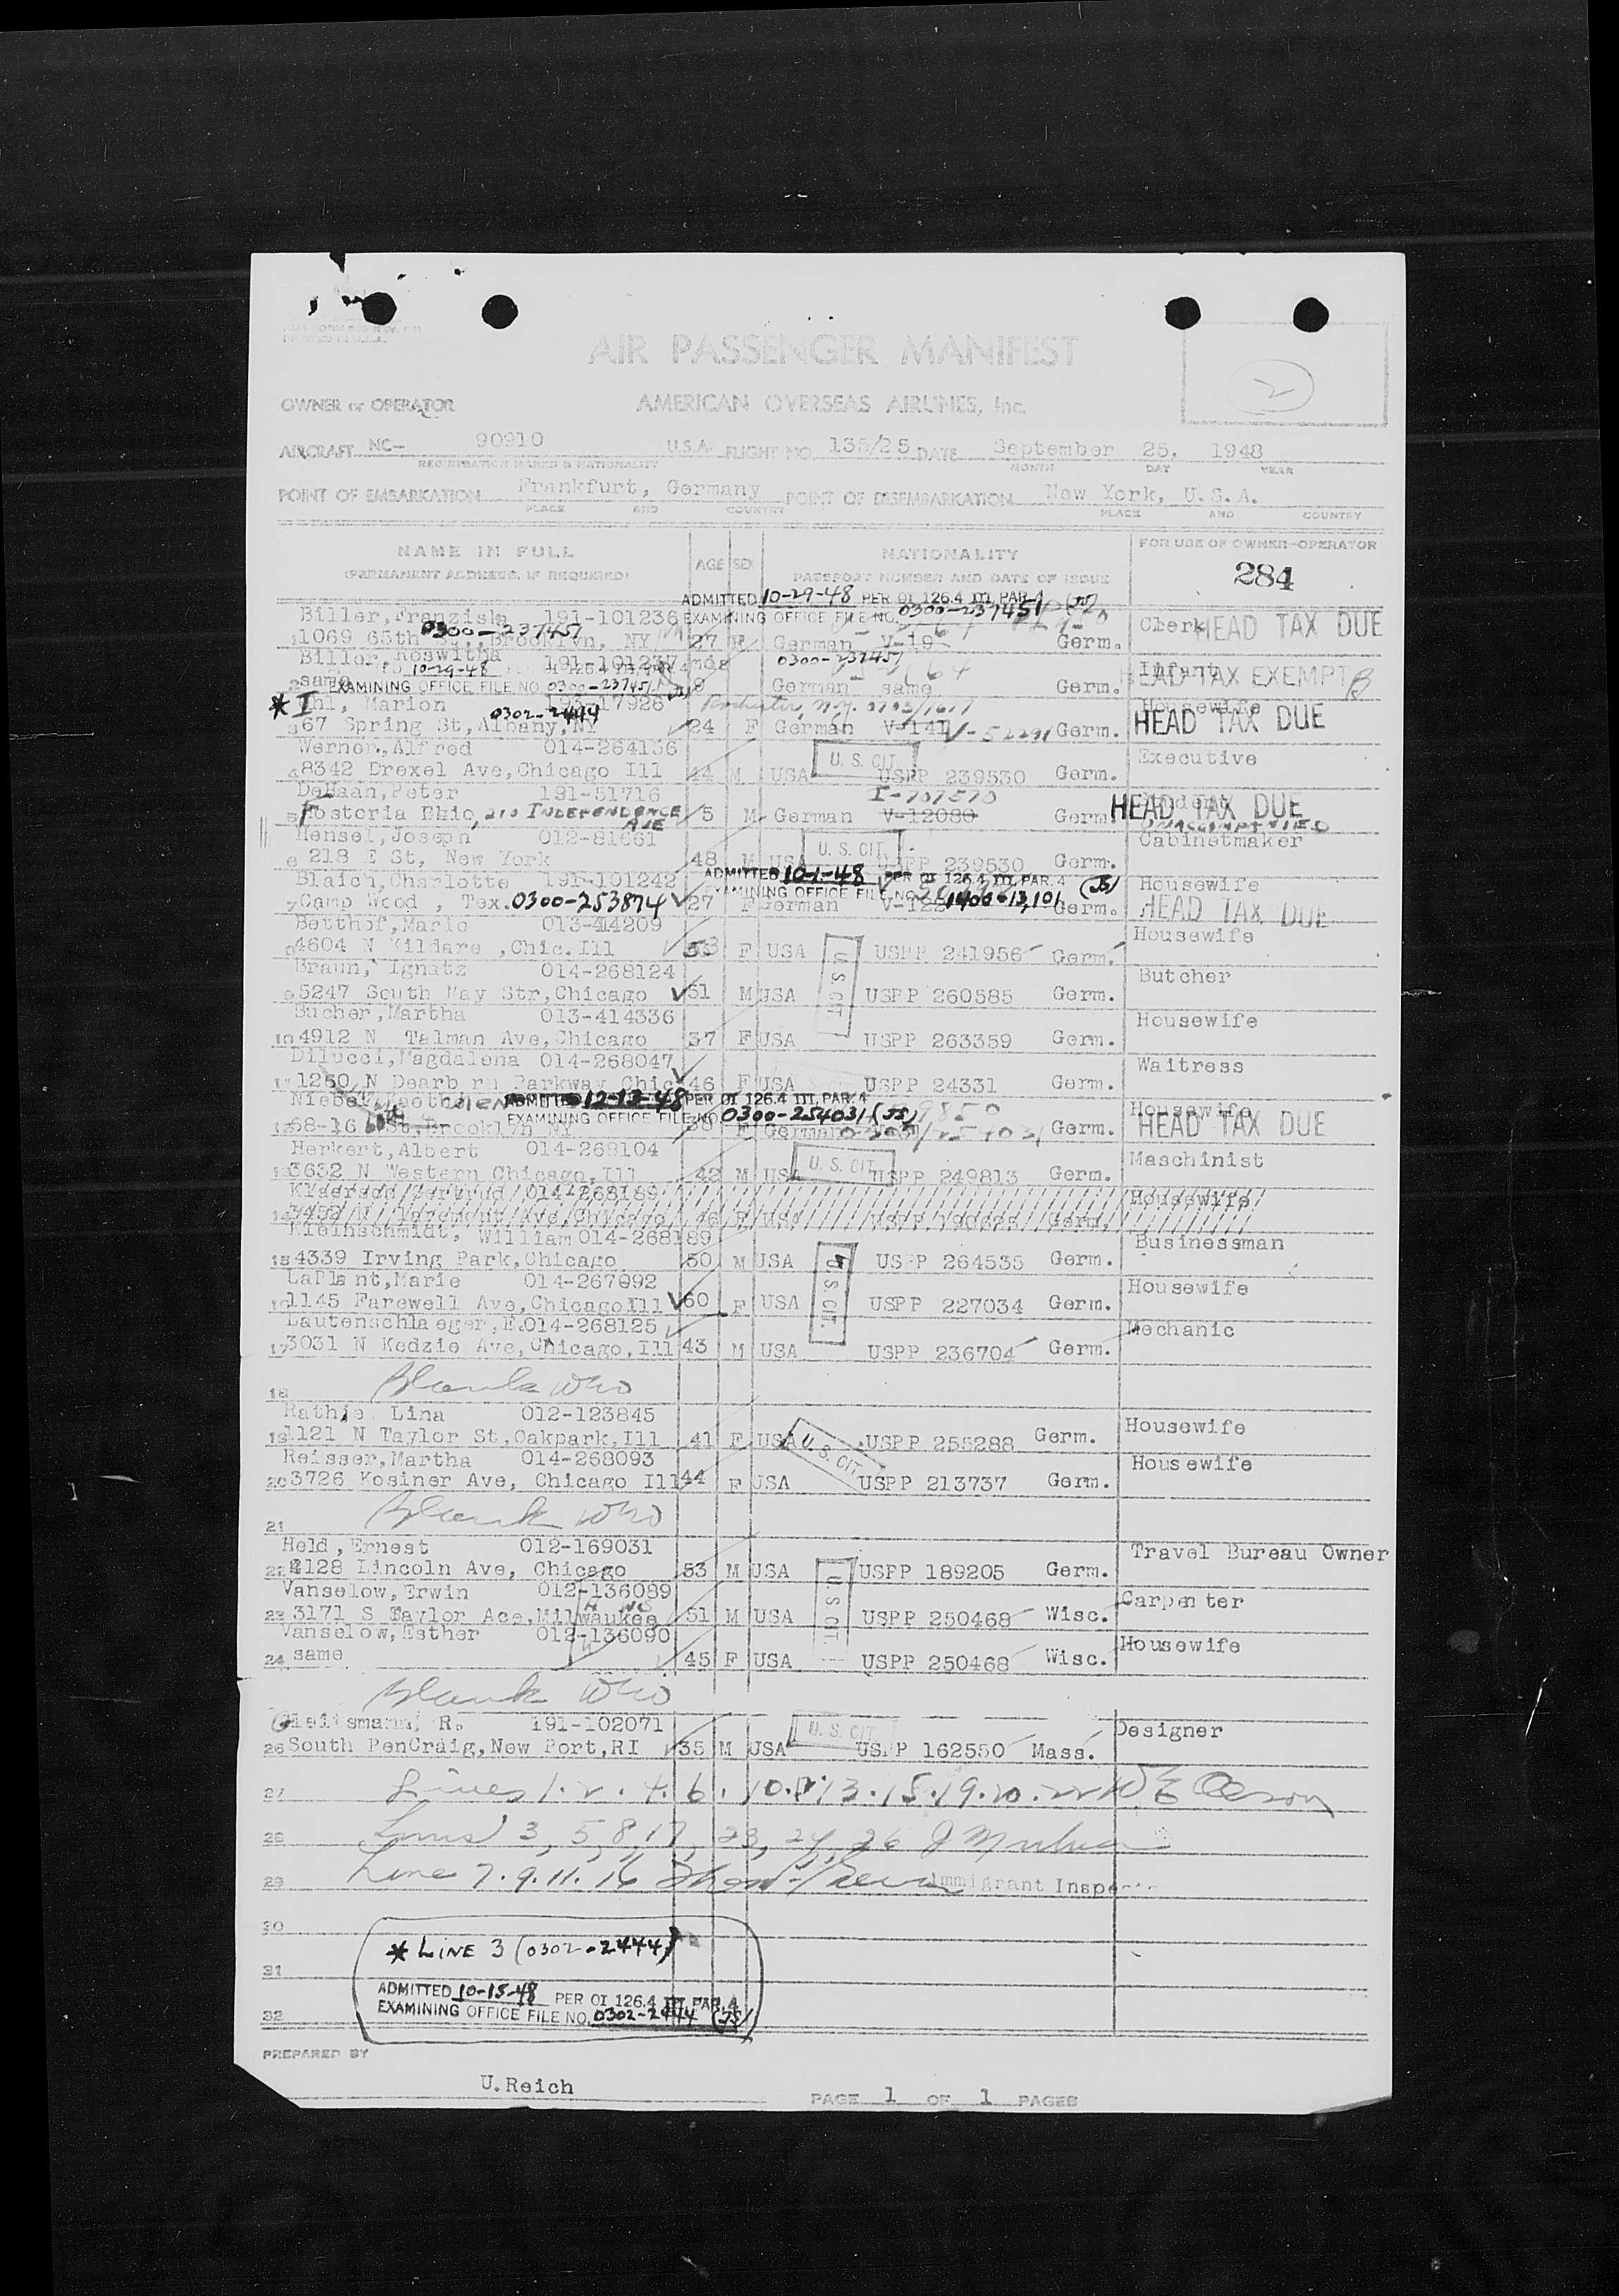 PRINTED IN U.S.A.
AIR PASSENGER MANIFEST
2
OWNER or OPERATOR AMERICAN OVERSEAS AIRLINES, Inc.
AIRCRAFT NC- 90910 U.S.A. FLIGHT NO. 135/25 DATE September 25, 1948
REGISTRATION MARKS & NATIONALITY MONTH DAY YEAR
POINT OF EMBARKATION Frankfurt, Germany POINT OF DISEMBARKATION New York, U.S.A.
PLACE AND COUNTRY PLACE AND COUNTRY
NAME IN FULL AGE SEX NATIONALITY FOR USE OF OWNER-OPERATOR
(PERMANENT ADDRESS, IF REQUIRED) PASSPORT NUMBER AND DATE OF ISSUE 284
ADMITTED 10-29-48 PER OI 126.4 III, PAR. 4
Biller, Franziska 191-101236 EXAMINING OFFICE FILE NO. 0300-237451 Clerk HEAD TAX DUE
0300-237451
1 1069 65th Brooklyn, NY 27 F German V-19 Germ.
Biller, Roswitha 191-101237 mds 0300-237451 Infant HEAD TAX EXEMPT
10-29-48
2 same 9 German same Germ.
EXAMINING OFFICE FILE NO. 0300-237451
* I
Ihl, Marion 193-17926 Rochester, N.Y. 0703/1617 Housewife
0302-2444
3 67 Spring St, Albany, NY 24 F German V-141 V-52291 Germ. HEAD TAX DUE
Werner, Alfred 014-264156 U. S. CIT. Executive
4 8342 Drexel Ave, Chicago Ill 44 M USA USPP 239530 Germ.
DeHaan, Peter 191-51716 I-707570 Student HEAD TAX DUE
5 Fostoria Ohio, 210 INDEPENDENCE AVE 5 M German V-12080 Germ. UNACCOMPANIED
Hensel, Joseph 012-81661 U. S. CIT. Cabinetmaker
6 218 E St, New York 48 M USA USPP 239530 Germ.
ADMITTED 10-1-48 PER OI 126.4 III, PAR. 4 (JS)
Blaich, Charlotte 191-101242 EXAMINING OFFICE FILE NO. 1400-13,101 Housewife
7 Camp Wood , Tex. 0300-253874 27 F German V-122 Germ. HEAD TAX DUE
Betthof, Marie 013-414209 Housewife
8 4604 N Kildare ,Chic. Ill 53 F USA USPP 241956 Germ.
Braun, Ignatz 014-268124 U S CIT. Butcher
9 5247 South May Str, Chicago 51 M USA USPP 260585 Germ.
Bucher, Martha 013-414336 Housewife
10 4912 N Talman Ave, Chicago 37 F USA USPP 263359 Germ.
Dilucci, Magdalena 014-268047 Waitress
11 1250 N Dearborn Parkway Chic 46 F USA USPP 24331 Germ.
ADMITTED 12-13-48 PER OI 126.4 III, PAR. 4 Housewife
EXAMINING OFFICE FILE NO. 0300-254031 (JS) HEAD TAX DUE
12 68-16 Brooklyn NY 38 F German Germ.
Herkert, Albert 014-268104 U. S. CIT. Maschinist
13 3632 N Western Chicago, Ill 42 M USA USPP 249813 Germ.
014-268189 Housewife
14 Ave, Chicago 46 F USA USPP Germ.
Kleinschmidt, William 014-268189 Businessman
15 4339 Irving Park, Chicago 50 M USA USPP 264535 Germ.
LaPlant, Marie 014-267092 U S CIT. Housewife
16 1145 Farewell Ave, Chicago Ill 60 F USA USPP 227034 Germ.
Lautenschlaeger, E. 014-268125 Mechanic
17 3031 N Kedzie Ave, Chicago, Ill 43 M USA USPP 236704 Germ.
18 Blank WEO
Rathje Lina 012-123845 Housewife
19 1121 N Taylor St, Oakpark, Ill 41 F USA U. S. CIT. USPP 255288 Germ.
Reisser, Martha 014-268093 Housewife
20 3726 Kosiner Ave, Chicago Ill 44 F USA USPP 213737 Germ.
21 Blank WEO
Held, Ernest 012-169031 Travel Bureau Owner
22 4128 Lincoln Ave, Chicago 53 M USA USPP 189205 Germ.
Vanselow, Erwin 012-136089 U. S CIT. Carpenter
23 3171 S Taylor Ace, Milwaukee 51 M USA USPP 250468 Wisc.
Vanselow, Esther 012-136090 Housewife
24 same 45 F USA USPP 250468 Wisc.
Blank WEO
Gleitsmann, R. 191-102071 U. S. CIT. Designer
26 South PenCraig, New Port, RI 35 M USA USPP 162550 Mass.
27 Lines 1. 2. 4. 6. 10. 13. 15. 19. 20. 22 W E Olson
28 Lines 3, 5, 8, 17, 23, 24, 26
29 Line 7. 9. 11. 16 Immigrant Inspector
30
* LINE 3 (0302-2444)
31
ADMITTED 10-15-48 PER OI 126.4 III, PAR. 4
32 EXAMINING OFFICE FILE NO. 0302-2444 (JS)
PREPARED BY
U. Reich PAGE 1 OF 1 PAGES